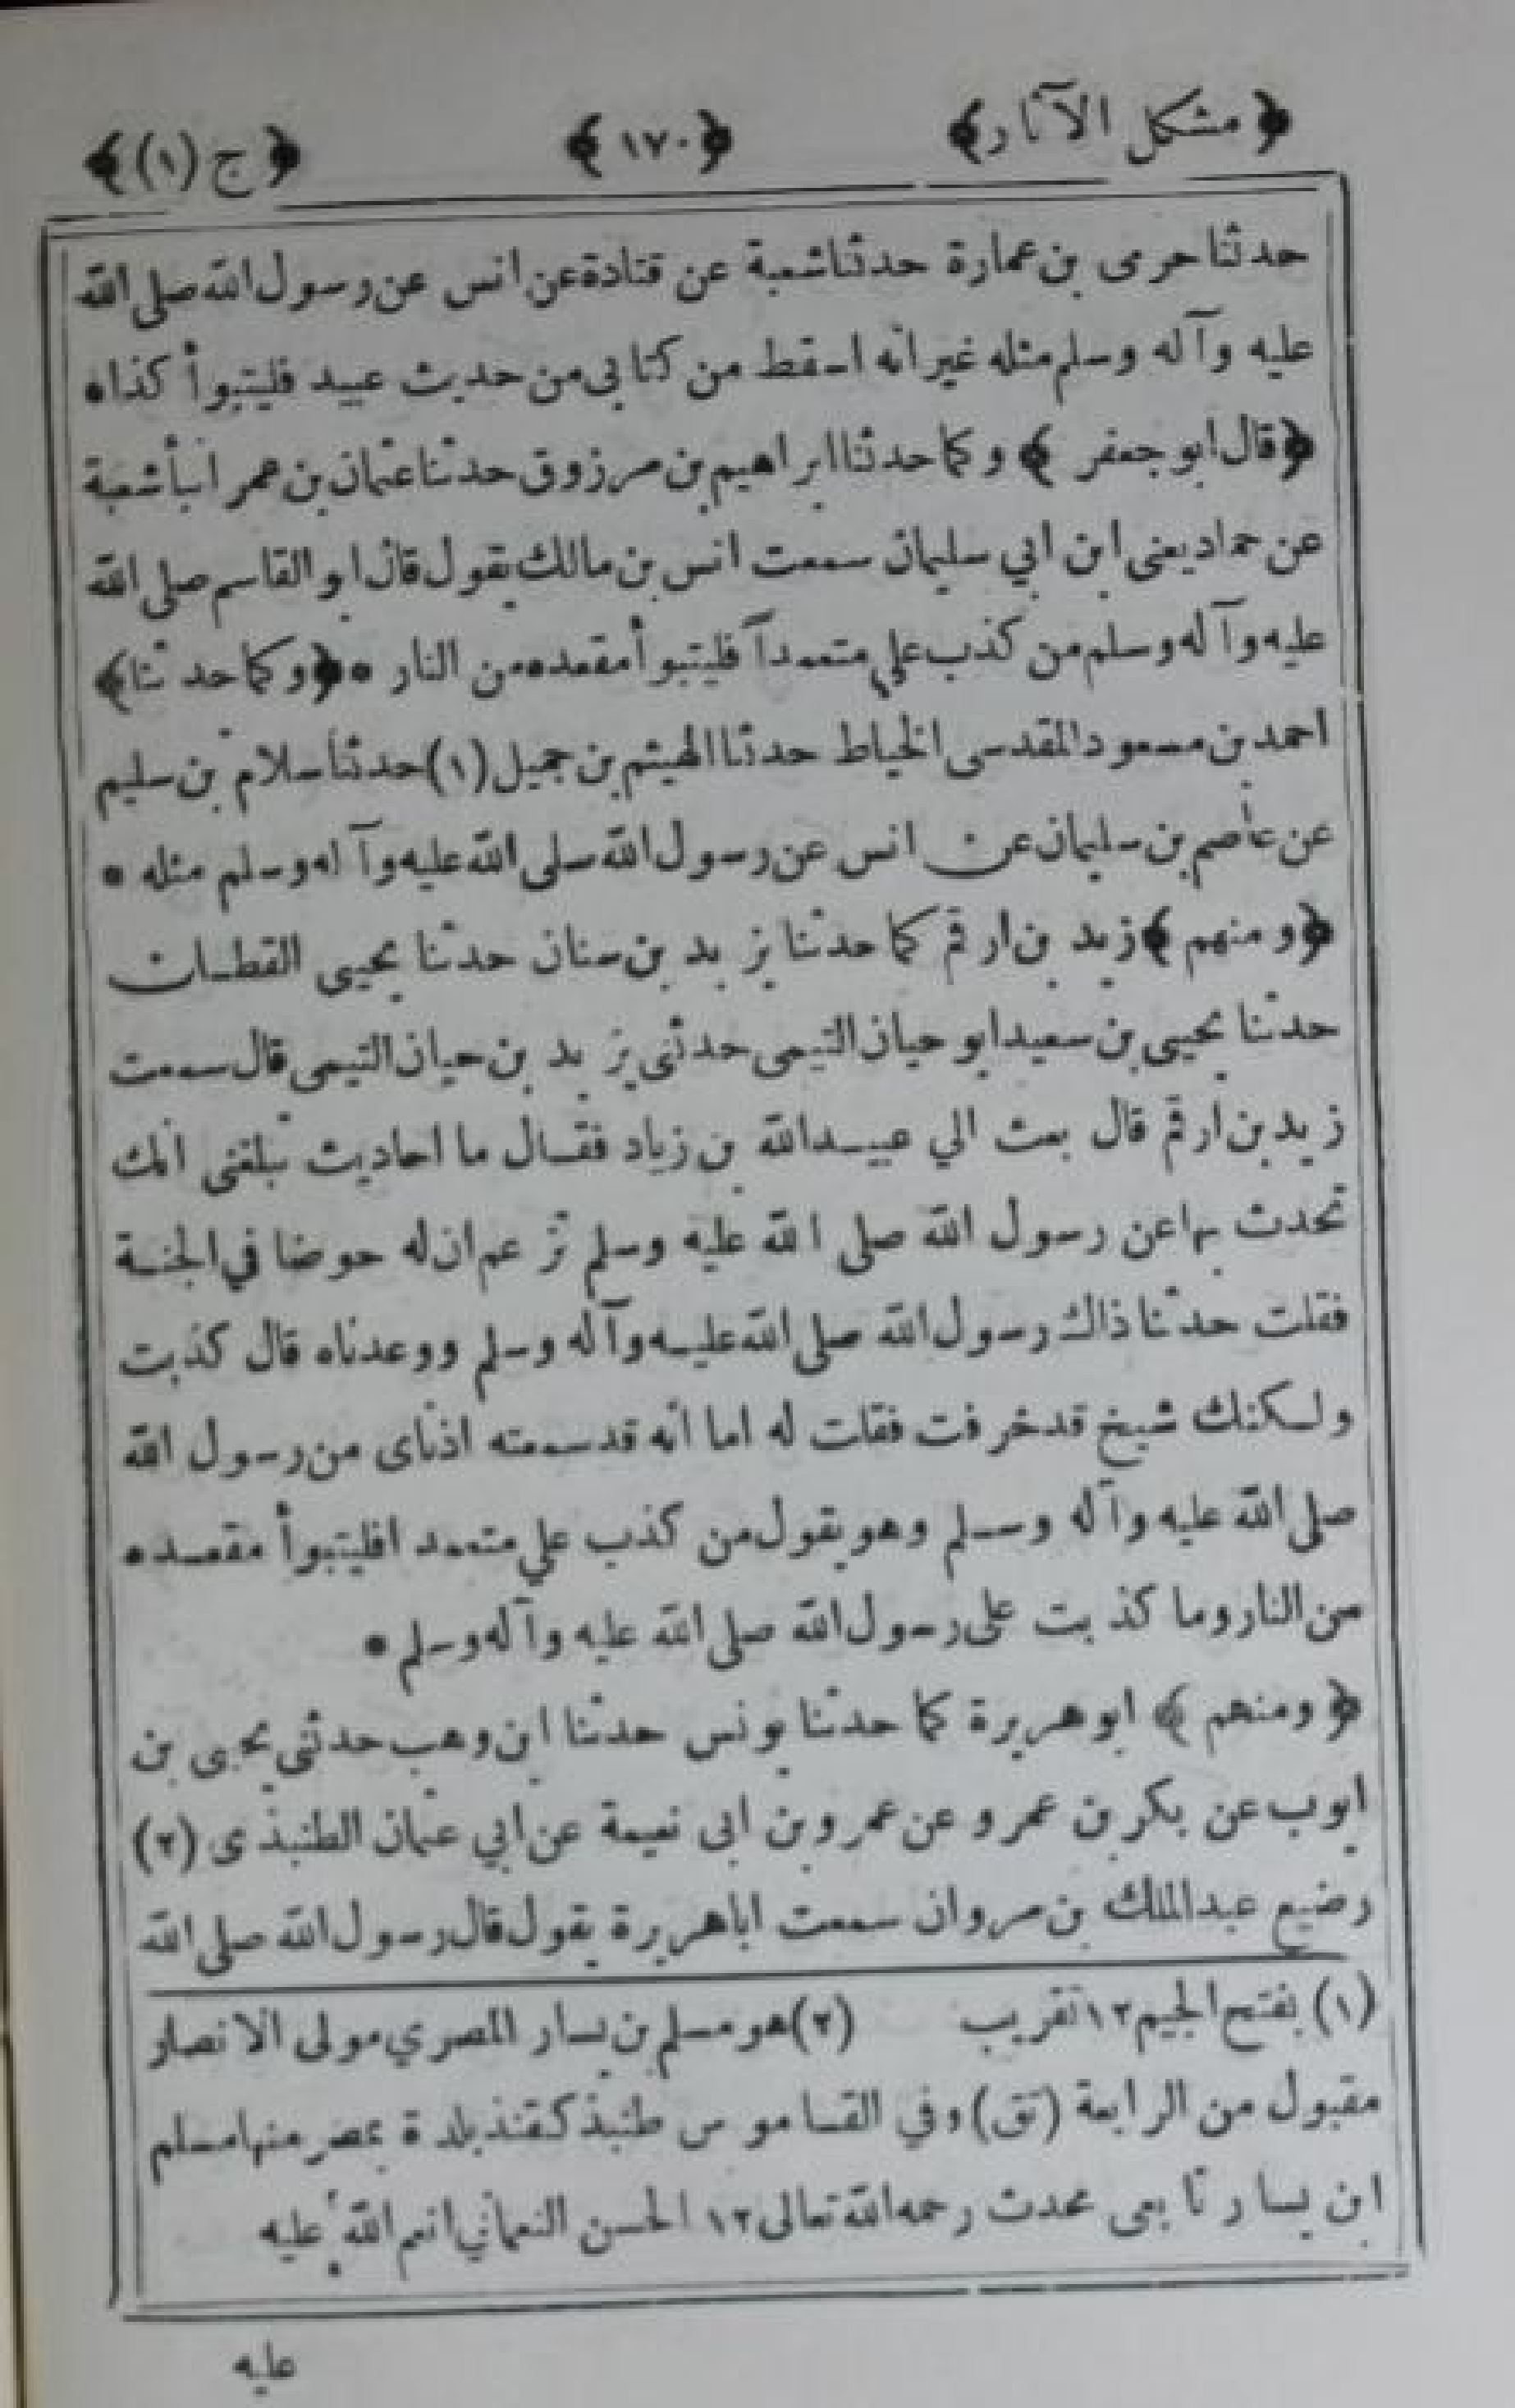 ﴿مشكل الآثار﴾ ﴿١٧٠﴾ ﴿ج (١)﴾
حدثنا حرمى بن عمارة حدثنا شعبة عن قتادة عن انس عن رسول الله صلى الله
عليه وآله وسلم مثله غير انه اسقط من كتابى من حديث عبيد فليتبوأ كذا •
﴿قال ابو جعفر ﴾ وكما حدثنا ابراهيم بن مرزوق حدثنا عثمان بن عمر انبأ شعبة
عن حماد يعنى ابن ابي سليمان سمعت انس بن مالك يقول قال ابو القاسم صلى الله
عليه وآله وسلم من كذب علي متعمدآ فليتبوأ مقعده من النار • ﴿وكما حدثنا﴾
احمد بن مسعود المقدسى الخياط حدثنا الهيثم بن جميل (١) حدثنا سلام بن سليم
عن عاصم بن سليمان عن انس عن رسول الله صلى الله عليه وآله وسلم مثله •
﴿ومنهم ﴾ زيد بن ارقم كما حدثنا يزيد بن سنان حدثنا يحيى القطان
حدثنا يحيى بن سعيد ابو حيان التيمى حدثنى يزيد بن حيان التيمى قال سمعت
زيد بن ارقم قال بعث الي عبيد الله بن زياد فقال ما احاديث تبلغنى انك
تحدث بها عن رسول الله صلى الله عليه وسلم تزعم ان له حوضا في الجنة
فقلت حدثنا ذاك رسول الله صلى الله عليه وآله وسلم ووعدناه قال كذبت
ولكنك شيخ قد خرفت فقلت له اما انه قد سمعته اذناى من رسول الله
صلى الله عليه وآله وسلم وهو يقول من كذب علي متعمدا فليتبوأ مقعده
من النار وما كذبت على رسول الله صلى الله عليه وآله وسلم •
﴿ ومنهم ﴾ ابو هريرة كما حدثنا يونس حدثنا ابن وهب حدثنى يحيى بن
ايوب عن بكر بن عمرو عن عمرو بن ابى نعيمة عن ابي عثمان الطنبذى (٢)
رضيع عبد الملك بن مروان سمعت ابا هريرة يقول قال رسول الله صلى الله
(١) بفتح الجيم ١٢ تقريب (٢) هو مسلم بن يسار المصري مولى الانصار
مقبول من الرابعة (تق) وفي القاموس طنبذ كقنفذ بلدة بمصر منها مسلم
ابن يسار تابعى محدث رحمه الله تعالى ١٢ الحسن النعمانى انعم الله عليه
عليه